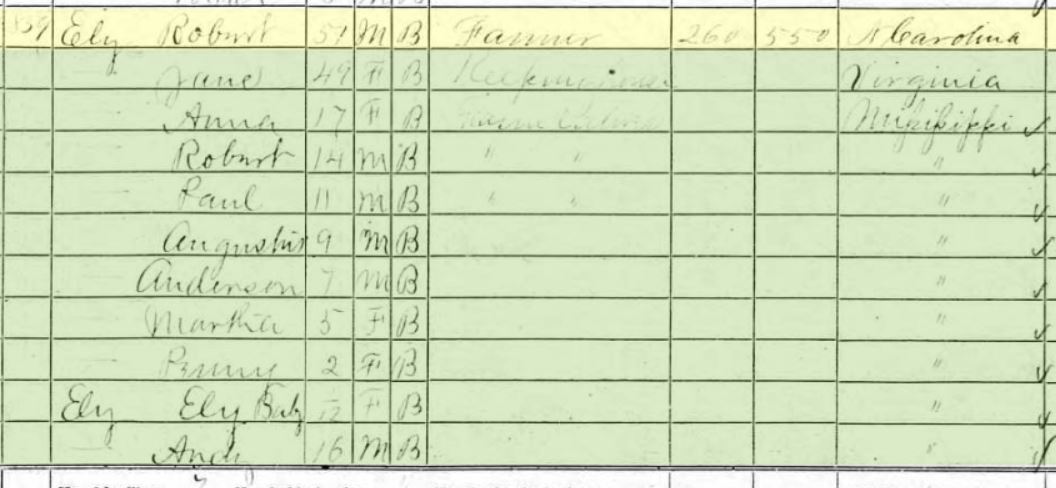 159 Ely Robert 51 M B Farmer 260 550 N Carolina
Jane 49 F B Keeping house Virginia
Anna 17 F B Mississippi ✓
Robert 14 M B " " " ✓
Paul 11 M B " " " ✓
Augustus 9 M B " ✓
Anderson 7 M B " ✓
Martha 5 F B " ✓
Penny 2 F B " ✓
Ely Ely Baby /12 F B " ✓
Andy 16 M B " ✓